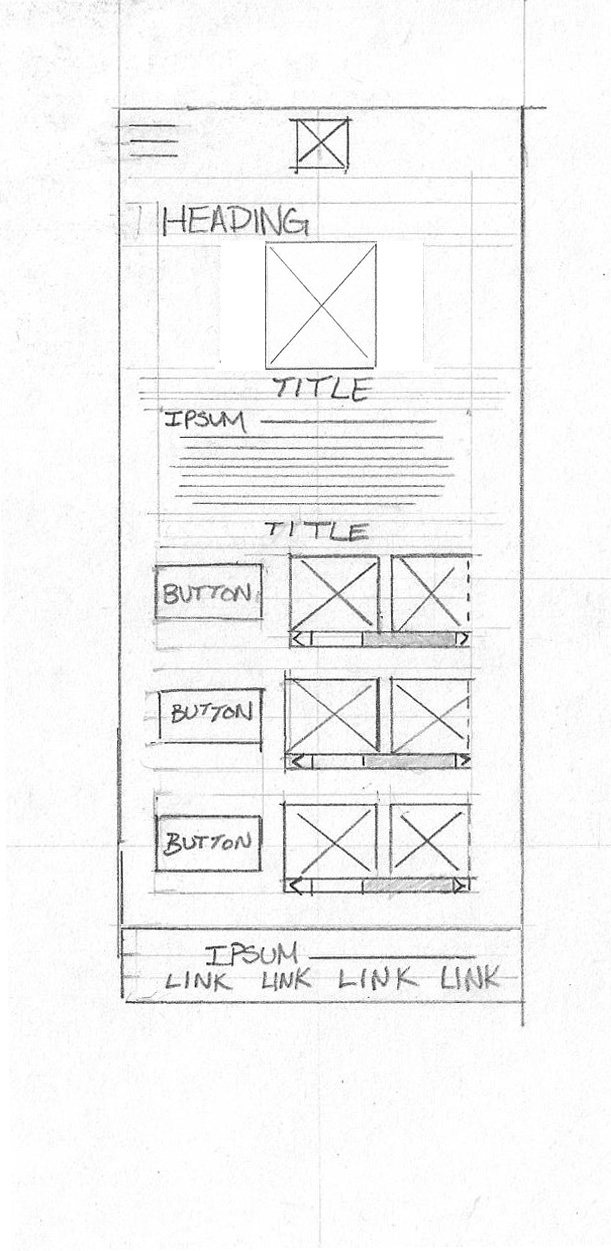 HEADING
TITLE
IPSUM
TITLE
BUTTON
BUTTON
BUTTON
IPSUM
LINK LINK LINK LINK